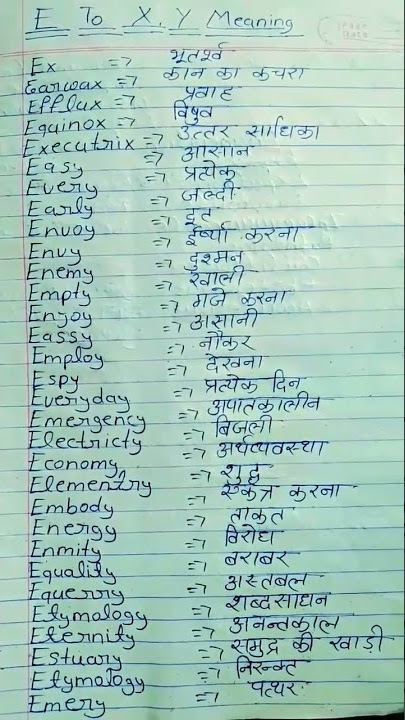 E To X, Y Meaning
Ex => भूतपूर्व
Earwax => कान का कचरा
Efflux => प्रवाह
Equinox => विषुव
Executrix => उत्तर साधिका
Easy => आसान
Every => प्रत्येक
Early => जल्दी
Envoy => दूत
Envy => ईर्ष्या करना
Enemy => दुश्मन
Empty => खाली
Enjoy => मजे करना
Eassy => असानी
Employ => नौकर
Espy => देखना
Everyday => प्रत्येक दिन
Emergency => अपातकालीन
Electricty => बिजली
Economy => अर्थव्यवस्था
Elementry => शुद्ध
Embody => एकत्र करना
Energy => ताकत
Enmity => विरोध
Equality => बराबर
Equerry => अस्तबल
Etymology => शब्दसाधन
Eternity => अनन्तकाल
Estuary => समुद्र की खाड़ी
Etymology => निरुक्त
Emery => पत्थर